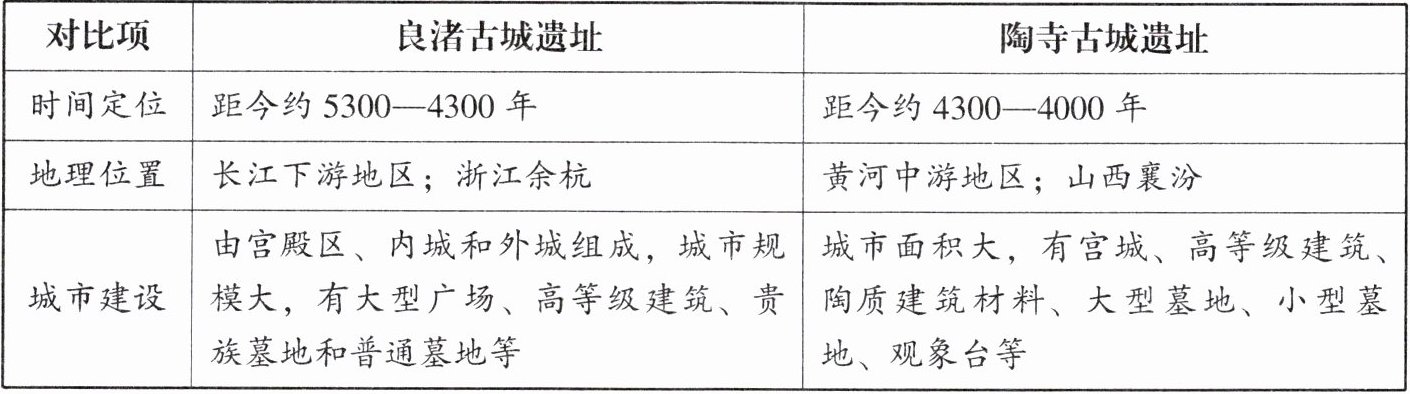 对比项 良渚古城遗址 陶寺古城遗址
时间定位 距今约 5300—4300 年 距今约 4300—4000 年
地理位置 长江下游地区；浙江余杭 黄河中游地区；山西襄汾
城市建设
由宫殿区、内城和外城组成，城市规
模大，有大型广场、高等级建筑、贵
族墓地和普通墓地等
城市面积大，有宫城、高等级建筑、
陶质建筑材料、大型墓地、小型墓
地、观象台等